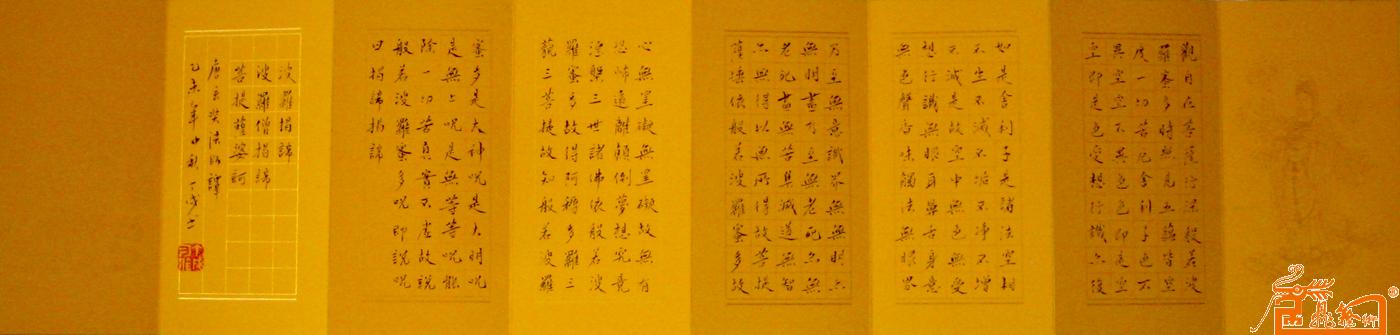 觀自在菩薩行深般若波
羅蜜多時照見五蘊皆空
度一切苦厄舍利子色不
異空空不異色色即是空
空即是色受想行識亦復
如是舍利子是諸法空相
不生不滅不垢不淨不增
不減是故空中無色無受
想行識無眼耳鼻舌身意
無色聲香味觸法無眼界
乃至無意識界無無明亦
無明盡乃至無老死亦無
老死盡無苦集滅道無智
亦無得以無所得故菩提
薩埵依般若波羅蜜多故
心無罣礙無罣礙故無有
恐怖遠離顛倒夢想究竟
涅槃三世諸佛依般若波
羅蜜多故得阿耨多羅三
藐三菩提故知般若波羅
蜜多是大神咒是大明咒
是無上咒是無等等咒能
除一切苦真實不虛故說
般若波羅蜜多咒即說咒
曰揭諦揭諦
波羅揭諦
波羅僧揭諦
菩提薩婆訶
唐玄奘法師譯
乙未年中秋